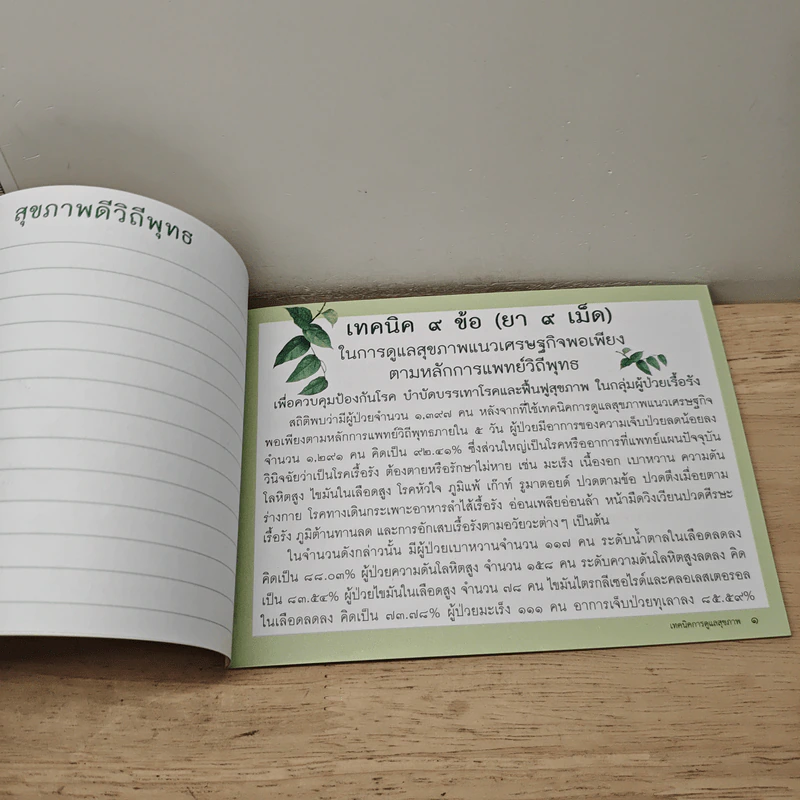 สุขภาพดีวิถีพุทธ
เทคนิค ๙ ข้อ (ยา ๙ เม็ด)
ในการดูแลสุขภาพแนวเศรษฐกิจพอเพียง
ตามหลักการแพทย์วิถีพุทธ
เพื่อควบคุมป้องกันโรค บำบัดบรรเทาโรคและฟื้นฟูสุขภาพ ในกลุ่มผู้ป่วยเรื้อรัง
สถิติพบว่ามีผู้ป่วยจำนวน ๑,๓๙๗ คน หลังจากที่ใช้เทคนิคการดูแลสุขภาพแนวเศรษฐกิจ
พอเพียงตามหลักการแพทย์วิถีพุทธภายใน ๕ วัน ผู้ป่วยมีอาการของความเจ็บป่วยลดน้อยลง
จำนวน ๑,๒๙๑ คน คิดเป็น ๙๒.๔๑% ซึ่งส่วนใหญ่เป็นโรคหรืออาการที่แพทย์แผนปัจจุบัน
วินิจฉัยว่าเป็นโรคเรื้อรัง ต้องตายหรือรักษาไม่หาย เช่น มะเร็ง เนื้องอก เบาหวาน ความดัน
โลหิตสูง ไขมันในเลือดสูง โรคหัวใจ ภูมิแพ้ เก๊าท์ รูมาตอยด์ ปวดตามข้อ ปวดตึงเมื่อยตาม
ร่างกาย โรคทางเดินกระเพาะอาหารลำไส้เรื้อรัง อ่อนเพลียอ่อนล้า หน้ามืดวิงเวียนปวดศีรษะ
เรื้อรัง ภูมิต้านทานลด และการอักเสบเรื้อรังตามอวัยวะต่างๆ เป็นต้น
ในจำนวนดังกล่าวนั้น มีผู้ป่วยเบาหวานจำนวน ๑๑๗ คน ระดับน้ำตาลในเลือดลดลง
คิดเป็น ๘๘.๐๓% ผู้ป่วยความดันโลหิตสูง จำนวน ๑๕๘ คน ระดับความดันโลหิตสูงลดลง คิด
เป็น ๘๓.๕๔% ผู้ป่วยไขมันในเลือดสูง จำนวน ๗๘ คน ไขมันไตรกลีเซอไรด์และคลอเลสเตอรอล
ในเลือดลดลง คิดเป็น ๗๓.๗๘% ผู้ป่วยมะเร็ง ๑๑๑ คน อาการเจ็บป่วยทุเลาลง ๘๕.๕๙%
เทคนิคการดูแลสุขภาพ ๑